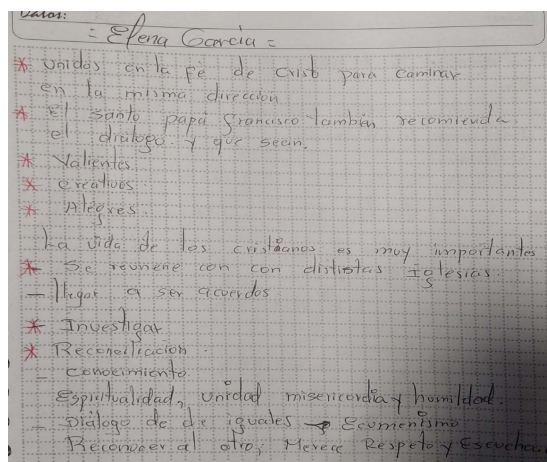 Datos:
= Elena García =
* Unidos en la fe de Cristo para caminar
en la misma dirección
* El santo papá Francisco también recomienda
el diálogo y que sean.
* Valientes
* Creativos
* Alegres.
La vida de los cristianos es muy importantes
* Se reunene con con dististas Iglesias.
- llegar a ser acuerdos
* Investigar
* Reconciliación.
- Conocimiento.
Espiritualidad, unidad misericordia y humildad.
- Diálogo de de iguales → Ecumenismo
Reconocer al otro; Merece Respeto y Escucha